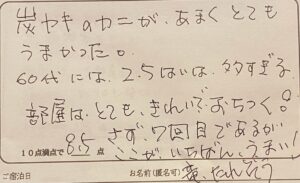 炭ヤキのカニが、あまくとても
うまかった。
60代には、2.5はいは、多すぎる
部屋は、とても、きれいで、おちつく。
10点満点で 8.5 点 さず、7回目であるが
ここが、いちばん、うまい!
ご宿泊日
お名前(匿名可)